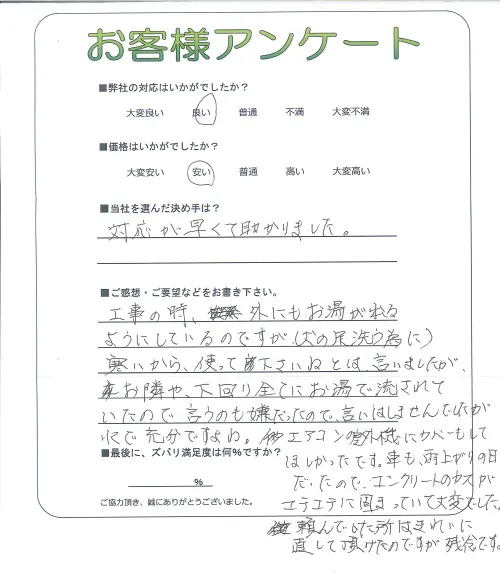 お客様アンケート
■弊社の対応はいかがでしたか？
大変良い 良い 普通 不満 大変不満
■価格はいかがでしたか？
大変安い 安い 普通 高い 大変高い
■当社を選んだ決め手は？
対応が早くて助かりました。
■ご感想・ご要望などをお書き下さい。
工事の時、外にもお湯が出る
ようにしているのですが、(犬の足洗う為に)
寒いから、使って下さいねとは、言いましたが、
お隣や、下回り全てにお湯で流されて
いたので言うのも嫌だったので、言いはしませんでしたが
水で充分ですよね。他エアコンの外機にカバーもして
ほしかったです。車も、雨上がりの日
だったので、コンクリートのカスが
エテエテに固まっていて大変でした。
頼んでいた所はきれいに
直して頂けたのですが残念です。
■最後に、ズバリ満足度は何%ですか？
%
ご協力頂き、誠にありがとうございました。